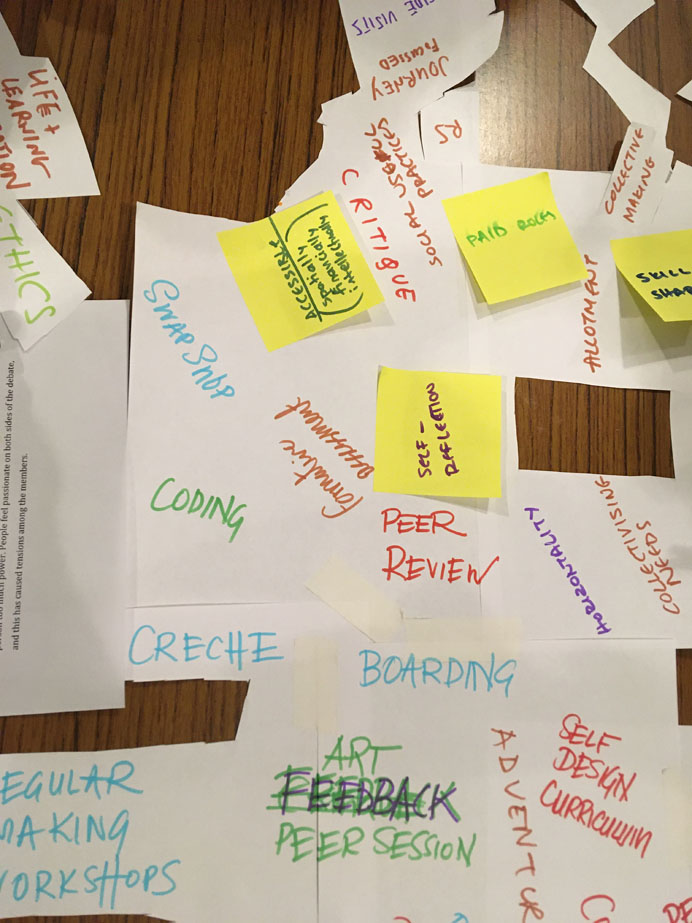 SITE VISITS
JOURNEY
FOCUSSED
LIFE +
LEARNING
ETHICS
RS
SOCIAL-USEFUL
PRACTICES
CRITIQUE
COLLECTIVE
MAKING
ACCESSIBLE
spatially
financially
intellectually
PAID ROLES
SKILL
SHAR
ALLOTMENT
SWAP SHOP
Formative
assessment
SELF-
REFLECTION
CODING
PEER
REVIEW
HORIZONTALITY
COLLECTIVISING
NEEDS
too much power. People feel passionate on both sides of the debate,
and this has caused tensions among the members.
CRECHE
BOARDING
EGULAR
MAKING
WORKSHOPS
ART
FEEDBACK
PEER SESSION
ADVENTUR
SELF
DESIGN
CURRICULUM
DE